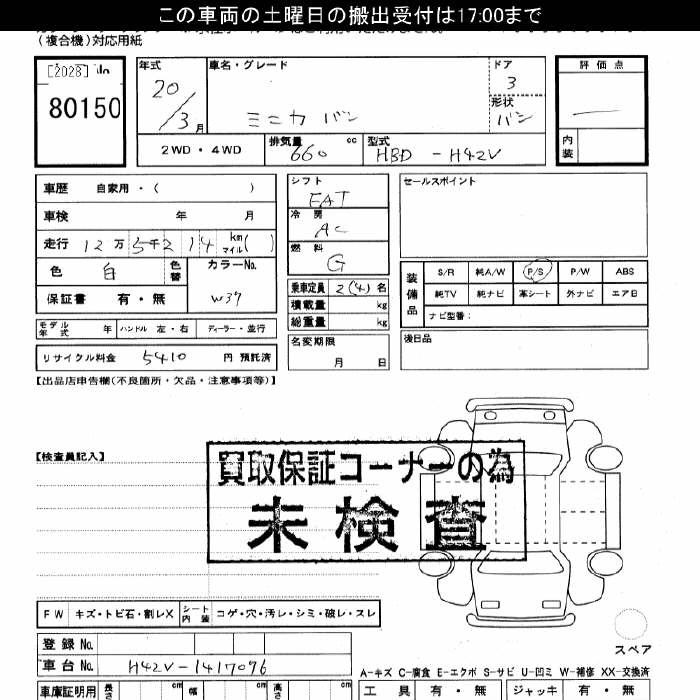 この車両の土曜日の搬出受付は17:00まで
(複合機)対応用紙
[2028] No
80150
年式
20/3月
車名・グレード
ミニカ バン
ドア
3
形状
バン
評価点
―
内装
2WD・4WD
排気量
660 cc
型式
HBD - H42V
車歴 自家用・( )
車検 年 月
走行 12万5千214 km マイル( )
色 白 色替
カラーNo.
W37
保証書 有・無
シフト
FAT
冷房
AC
燃料
G
乗車定員 2(4)名
積載量 kg
総重量 kg
名変期限
月 日
セールスポイント
装備品
S/R 純A/W P/S P/W ABS
純TV 純ナビ 革シート 外ナビ エアB
ナビ型番:
後日品
モデル年式 年 ハンドル 左・右 ディーラー・並行
リサイクル料金 5410 円 預託済
【出品店申告欄(不良箇所・欠品・注意事項等)】
【検査員記入】
買取保証コーナーの為
未検査
FW キズ・トビ石・割レX シート内装 コゲ・穴・汚レ・シミ・破レ・スレ
登録No.
車台No. H42V-1417096
スペア
A-キズ C-腐食 E-エクボ S-サビ U-凹ミ W-補修 XX-交換済
車庫証明用 長さ cm 幅 cm 高さ cm
工具 有・無 ジャッキ 有・無